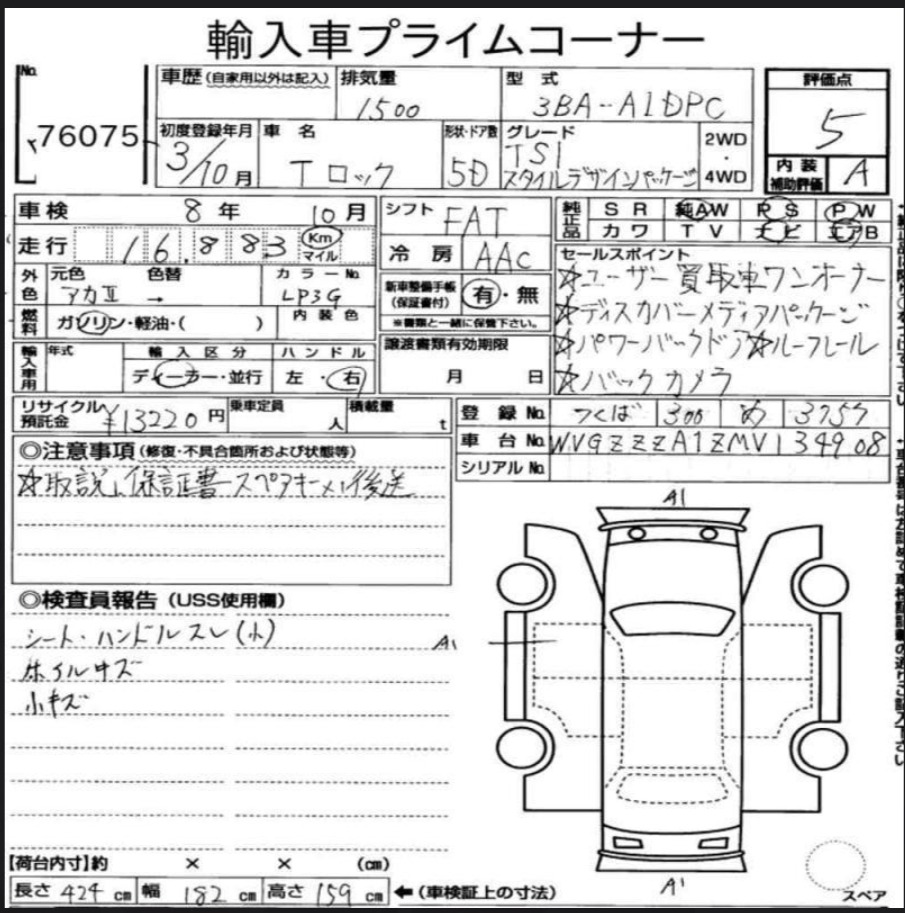 輸入車プライムコーナー
No.
76075
車歴(自家用以外は記入)
排気量
1500
型式
3BA-A1DPC
評価点
5
初度登録年月
3/10月
車名
Tロック
形状・ドア数
5D
グレード
TSI
スタイルデザインパッケージ
2WD
・
4WD
内装
補助評価
A
車検 8年 10月
シフト FAT
純正品
SR 純AW PS PW
カワ TV ナビ エアB
走行 16,883 Km
マイル
冷房 AAC
セールスポイント
☆ユーザー買取車ワンオーナー
☆ディスカバーメディアパッケージ
☆パワーバックドア☆ルーフレール
☆バックカメラ
外色
元色 色替 カラーNo.
アカII → LP3G
新車整備手帳
(保証書付)
有・無
※書類と一緒に保管下さい。
燃料
ガソリン・軽油・( )
内装色
輸入車用
年式
輸入区分
ディーラー・並行
ハンドル
左・右
譲渡書類有効期限
月 日
リサイクル
預託金
¥13220円
乗車定員
人
積載量
t
登録No. つくば 300 め 3757
車台No. WVGZZZA1ZMV134908
シリアルNo.
◎注意事項(修復・不具合箇所および状態等)
☆取説、保証書 スペアキー×1後送
A1
◎検査員報告(USS使用欄)
シート・ハンドルスレ(小)
ホイルキズ
小キズ
A1
【荷台内寸】約 × × (cm)
長さ 424 cm 幅 182 cm 高さ 159 cm ←(車検証上の寸法)
A1
スペア